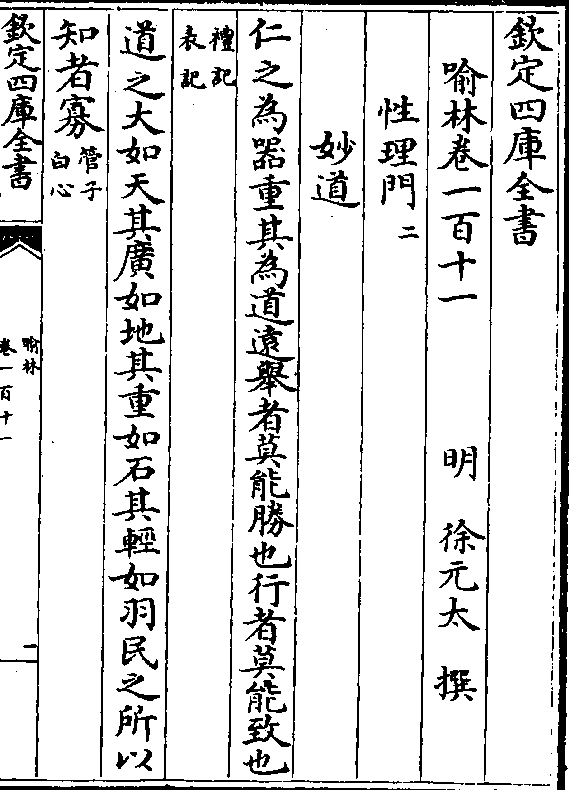 欽定四庫全書
喻林卷一百十一 明 徐元太 撰
性理門二
妙道
仁之為器重其為道遠舉者莫能勝也行者莫能致也
禮記
表記
道之大如天其廣如地其重如石其輕如羽民之所以
知者寡管子
白心
欽定四庫全書
喻林
卷一百十一
二